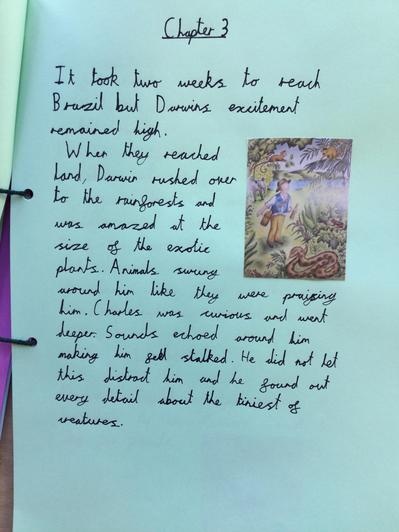 Chapter 3
It took two weeks to reach
Brazil but Darwins excitement
remained high.
When they reached
land, Darwin rushed over
to the rainforests and
was amazed at the
size of the exotic
plants. Animals swung
around him like they were praising
him. Charles was curious and went
deeper. Sounds echoed around him
making him feel stalked. He did not let
this distract him and he found out
every detail about the tiniest of
creatures.